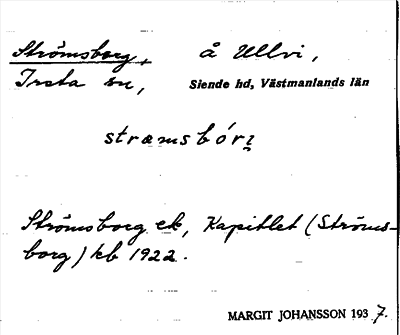 Strömsborg, å Ullvi,
Irsta sn, Siende hd, Västmanlands län
strœmsbórȷ
Strömsborg ek, Kapitlet (Ströms-
borg) kb 1922.
MARGIT JOHANSSON 1937.